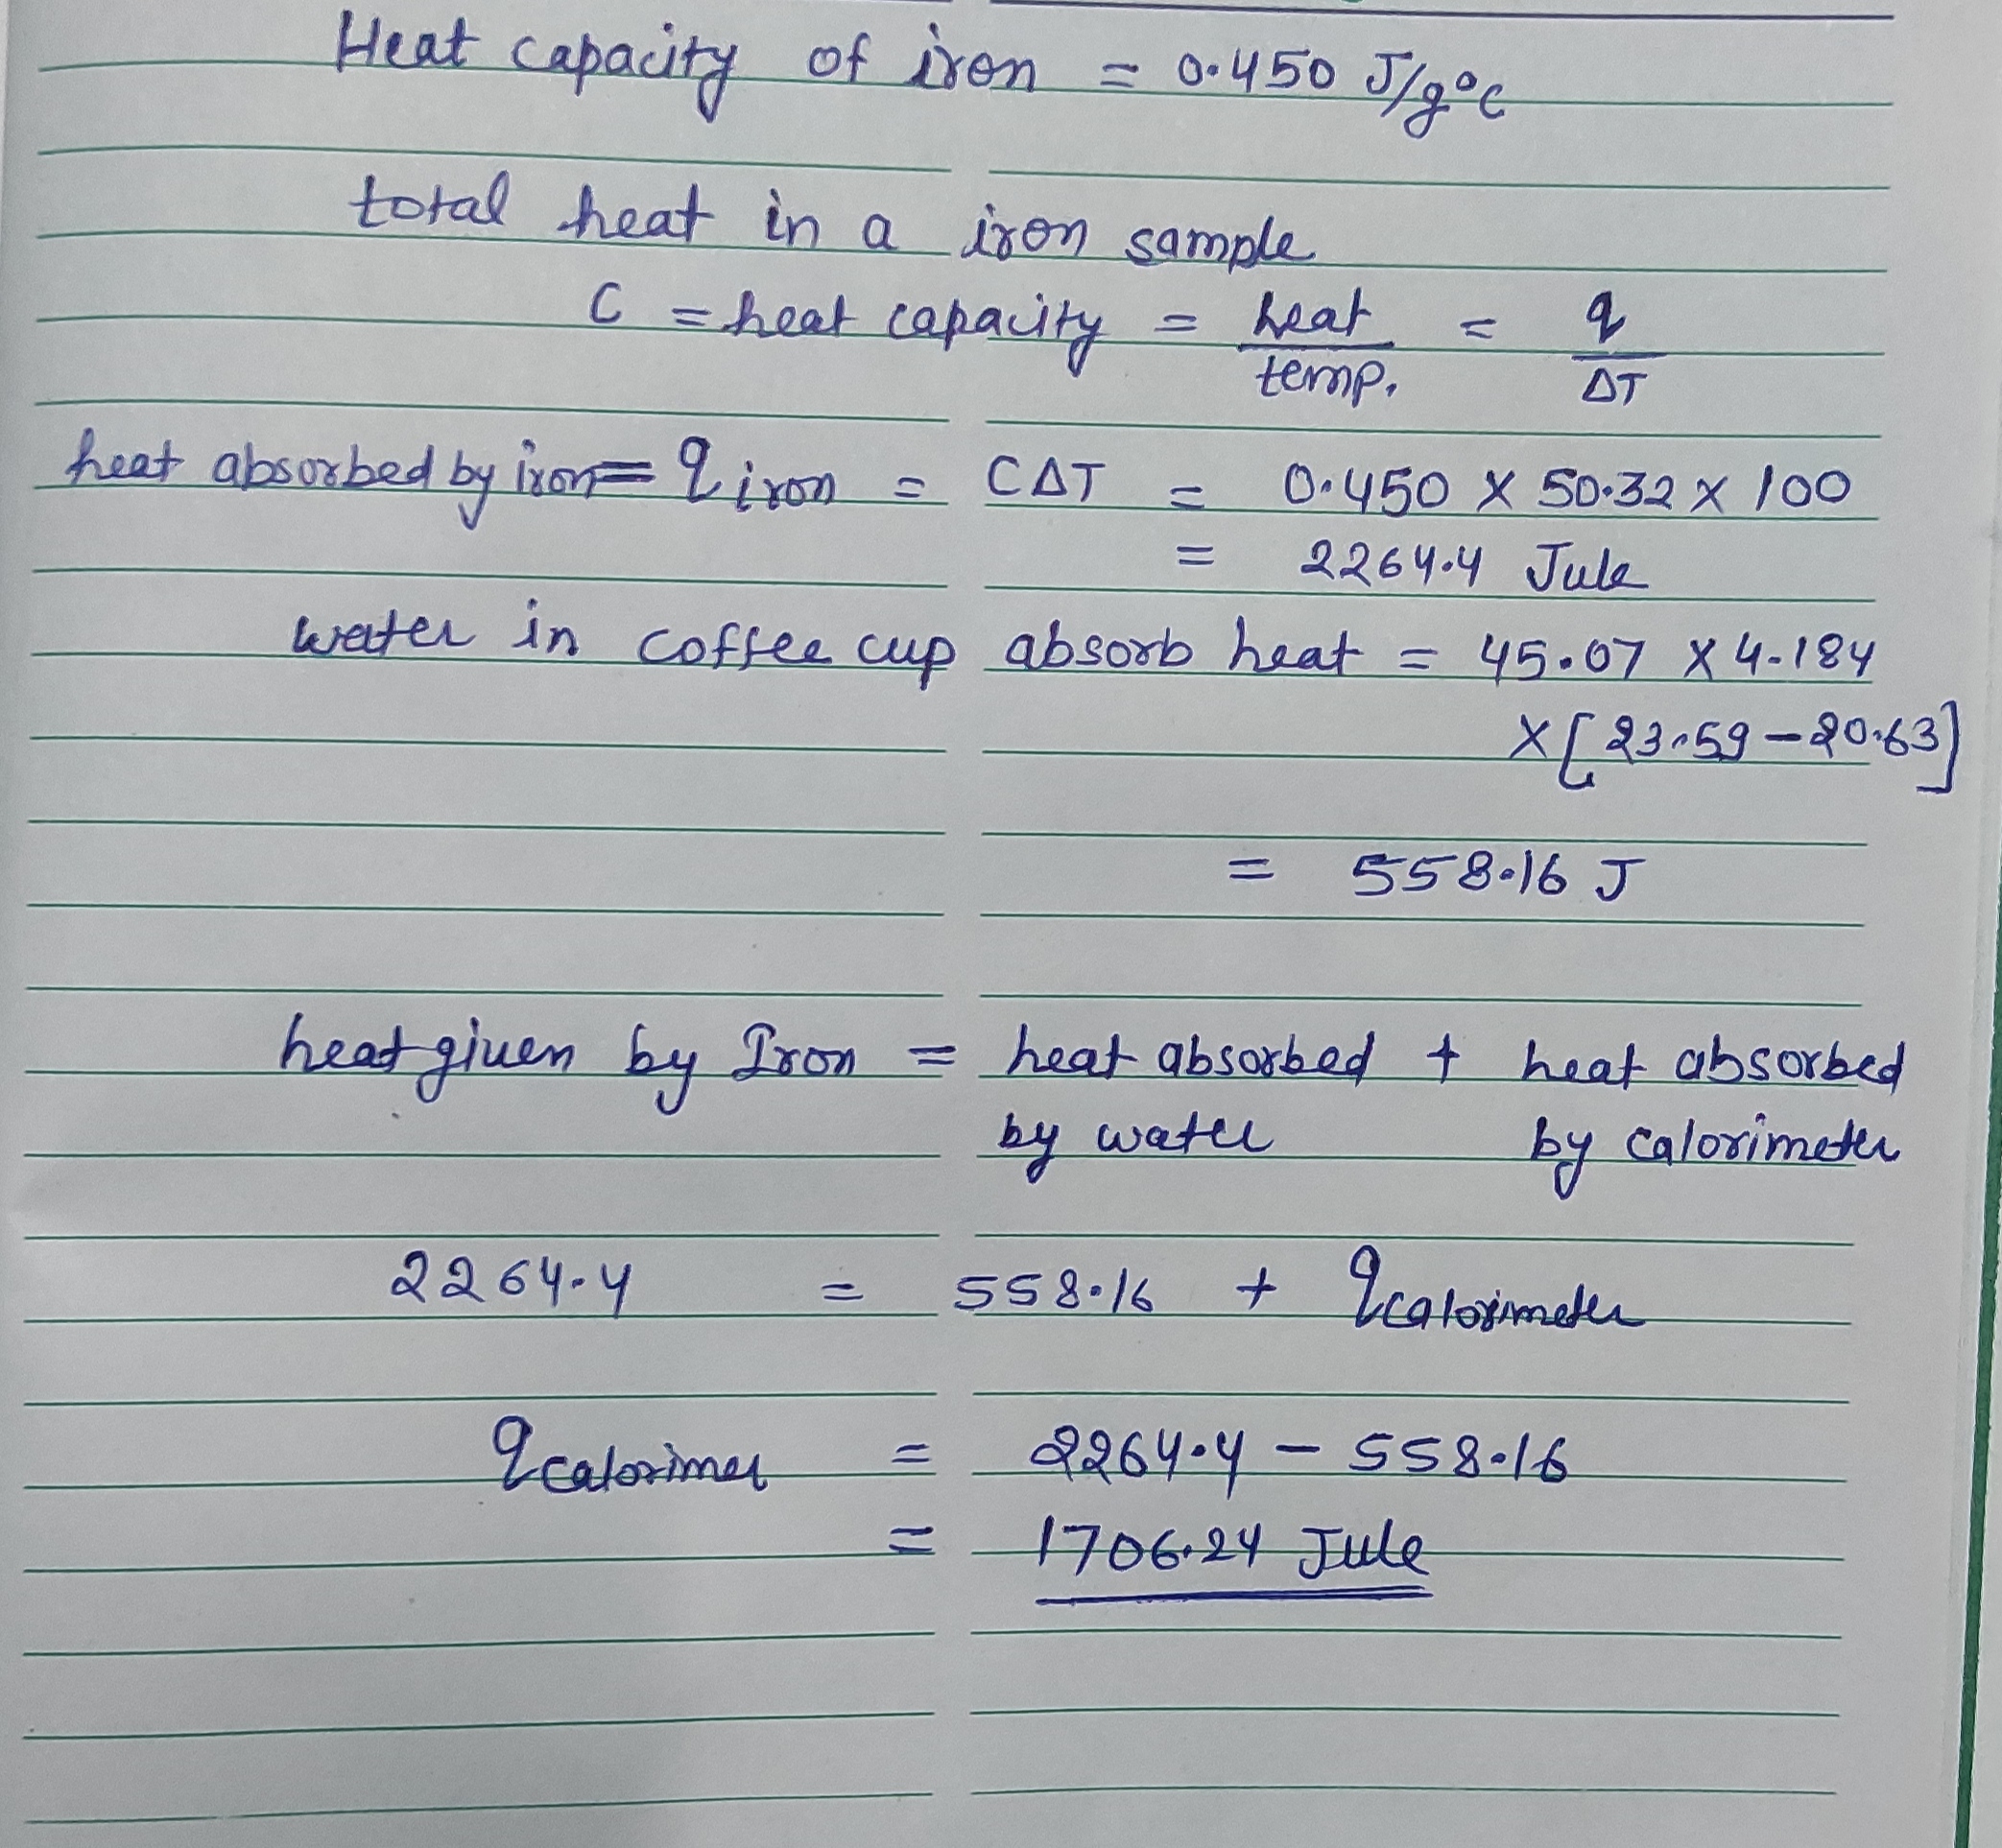 Heat capacity of iron = 0.450 J/g°C
total heat in a iron sample
C = heat capacity = heat/temp. = q/ΔT
heat absorbed by iron = q iron = CΔT = 0.450 x 50.32 x 100
= 2264.4 Jule
water in coffee cup absorb heat = 45.07 x 4.184
x [23.59 - 20.63]
= 558.16 J
heat given by Iron = heat absorbed + heat absorbed
by water by calorimeter
2264.4 = 558.16 + qcalorimeter
qcalorimer = 2264.4 - 558.16
= 1706.24 Jule